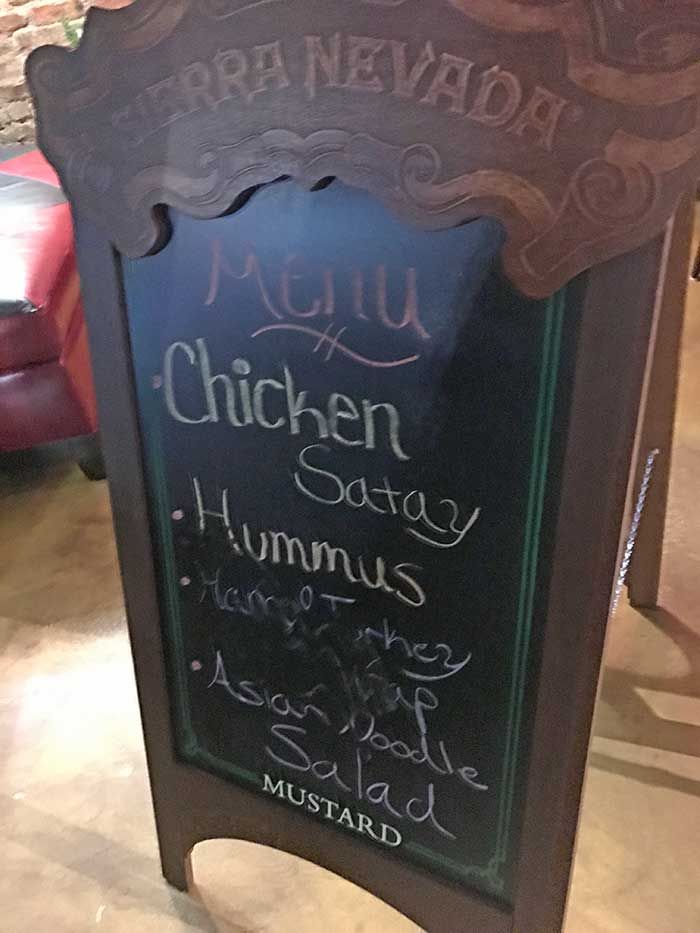 SIERRA NEVADA
Menu
Chicken
Satay
Hummus
Wrap
Asian Noodle
Salad
MUSTARD